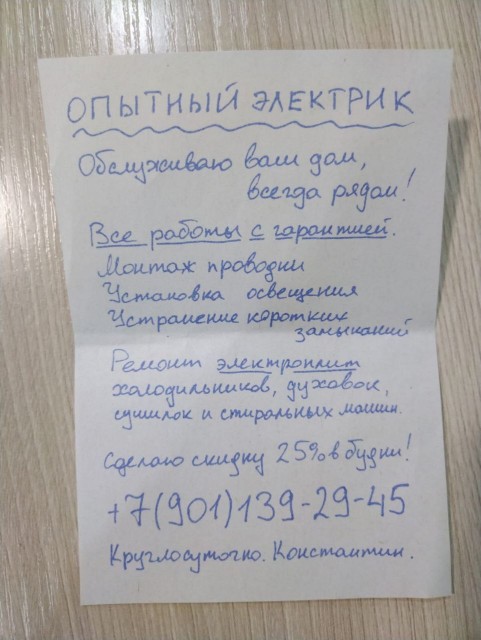 ОПЫТНЫЙ ЭЛЕКТРИК
Обслуживаю ваш дом,
всегда рядом!
Все работы с гарантией.
Монтаж проводки
Установка освещения
Устранение коротких
замыканий
Ремонт электроплит
холодильников, духовок,
сушилок и стиральных машин.
Сделаю скидку 25% в будни!
+7(901)139-29-45
Круглосуточно. Константин.